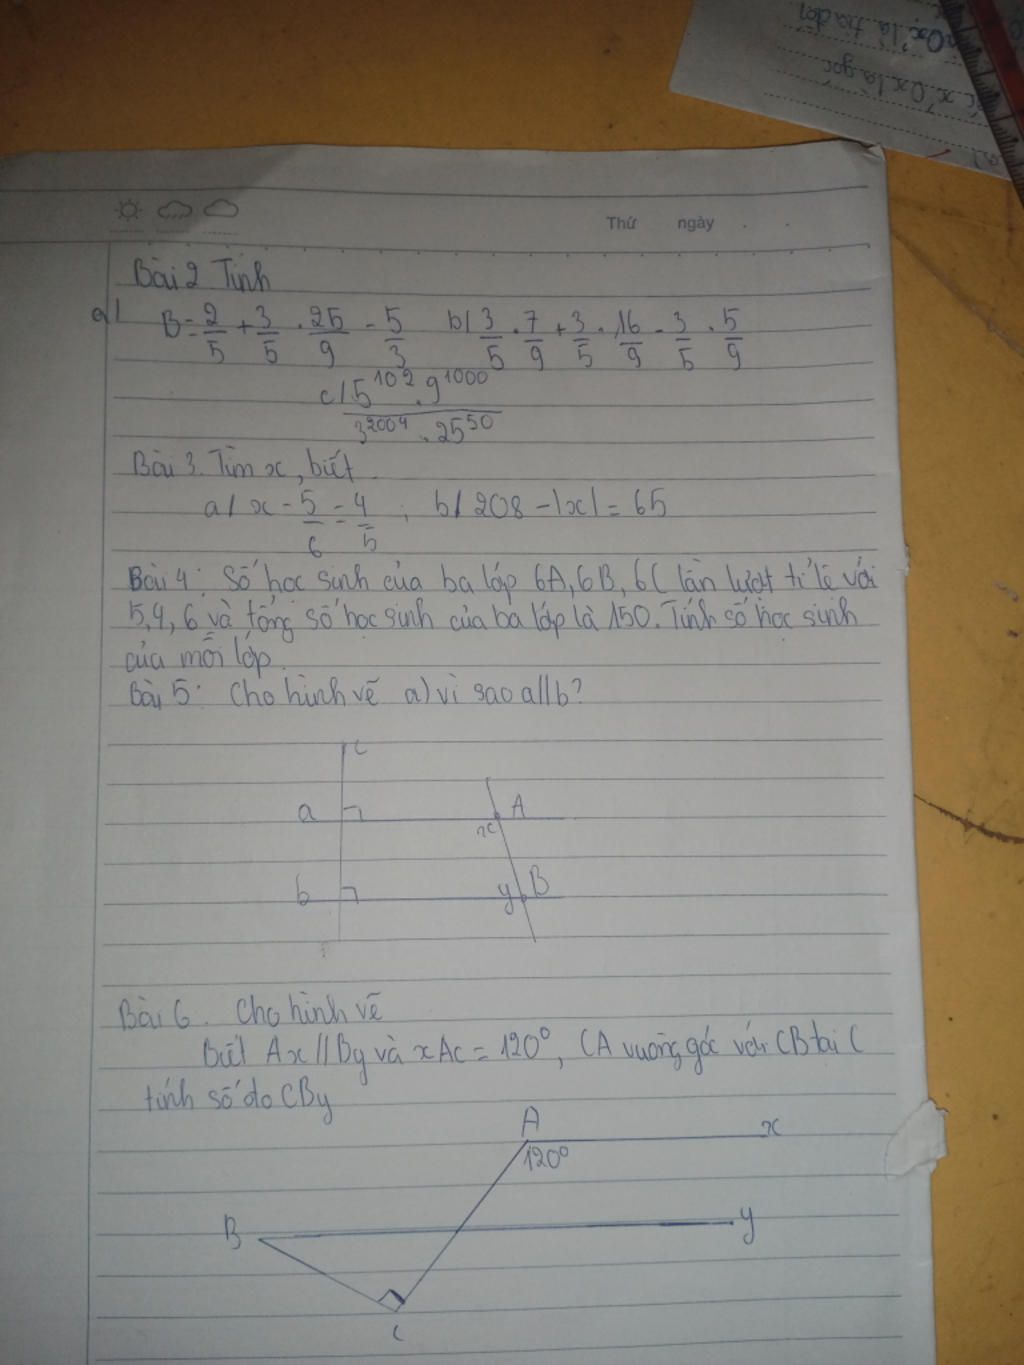 x'Ox là góc
Ox' là tia đối
Thứ ngày
Bài 2 Tính
a/ B = 2/5 + 3/5 . 25/9 - 5/3 b/ 3/5 . 7/9 + 3/5 . 16/9 - 3/5 . 5/9
c/ 5^102 . 9^1000 / 3^2004 . 25^50
Bài 3. Tìm x, biết
a/ x - 5/6 = 4/5 ; b/ 208 - |x| = 65
Bài 4: Số học sinh của ba lớp 6A, 6B, 6C lần lượt tỉ lệ với
5, 4, 6 và tổng số học sinh của ba lớp là 150. Tính số học sinh
của mỗi lớp.
Bài 5: Cho hình vẽ a) vì sao a//b?
c
a A
x
b y B
Bài 6. Cho hình vẽ
Biết Ax // By và xAc = 120°, CA vuông góc với CB tại C
tính số đo CBy
A x
120°
B y
C